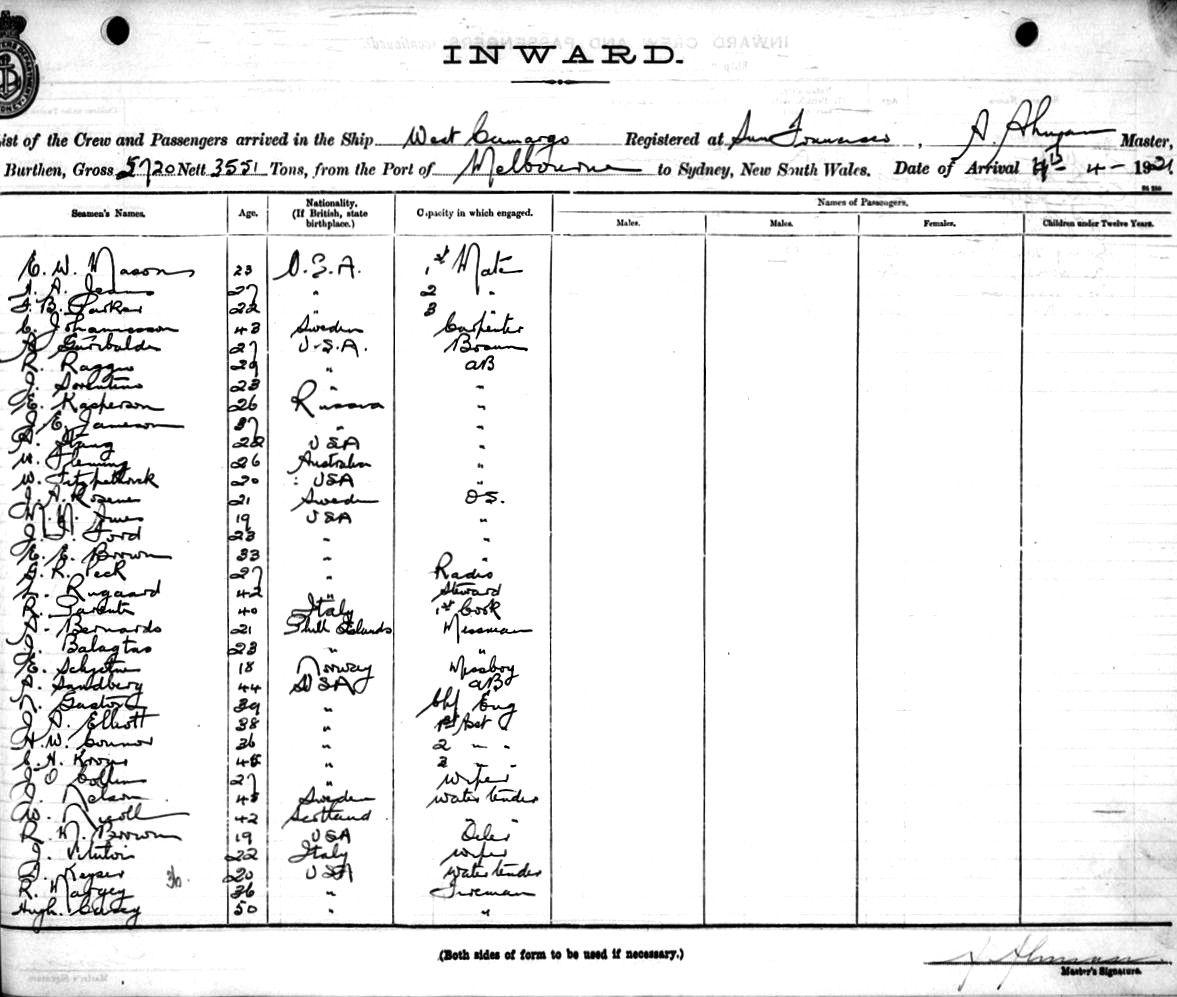 INWARD.
List of the Crew and Passengers arrived in the Ship West Camargo Registered at San Francisco, A. Master,
Burthen, Gross 5720 Nett 3551 Tons, from the Port of Melbourne to Sydney, New South Wales. Date of Arrival 4 - 1921
Seamen's Names. Age. Nationality. (If British, state birthplace.) Capacity in which engaged. Names of Passengers.
Males. Males. Females. Children under Twelve Years.
E. W. Mason 23 U.S.A. 1st Mate
Jeans 27 " 2 "
J. B. Parker 22 " 3
C. Johannesson 43 Sweden Carpenter
Garibaldi 27 U.S.A. Bosun
R. Raggio 29 " AB
J. Sorentino 23 " "
E. Kasperson 26 Russia "
J. E. Jameson 37 " "
Stang 22 USA "
Fleming 26 Australia "
W. Fitzpatrick 20 : USA "
J. A. Rosene 21 Sweden OS.
19 USA "
J. J. Ford 23 " "
E. E. Brown 33 " "
R. Peck 27 " Radio
L. Rugaard 42 " Steward
R. Parenti 40 Italy 1st Cook
Bernardo 21 Phill Islands Messman
J. Balagtas 23 " "
E. 18 Norway Messboy
Sandberg 44 USA AB
39 " Chf Eng
J. A. Elliott 38 " 1st Ast
H. W. Connor 36 " 2 " "
C. H. 45 " 3 " "
J. O 27 " wiper
J. Nelson 45 Sweden water tender
W. Nicoll 42 Scotland "
R. M. Brown 19 USA Oiler
J. 22 Italy wiper
Keyser 20 USA water tender
R. 36 " Fireman
Hugh. Casey 50 " "
(Both sides of form to be used if necessary.)
Master's Signature.